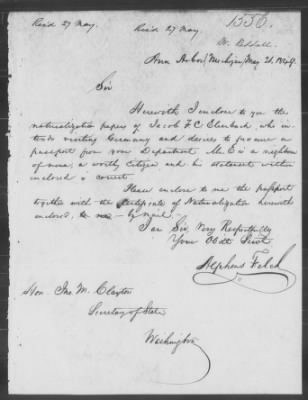 Rec'd 27 May.
Rec'd 27 May.
1556.
W.
Ann Arbor, Michigan, May 21, 1849.
Sir
Herewith I enclose to you the
naturalization papers of Jacob F. C. Eberbach, who in-
tends visiting Germany and desires to procure a
passport from your Department. Mr. E is a neighbor
of mine, a worthy citizen and his statement within
enclosed is correct.
Please enclose to me the passport
together with the Certificate of Naturalization herewith
enclosed, to me - by mail.
I am Sir, Very Respectfully
Your Obdt Servt
Alpheus Felch
Hon. Jno. M. Clayton
Secretary of State
Washington